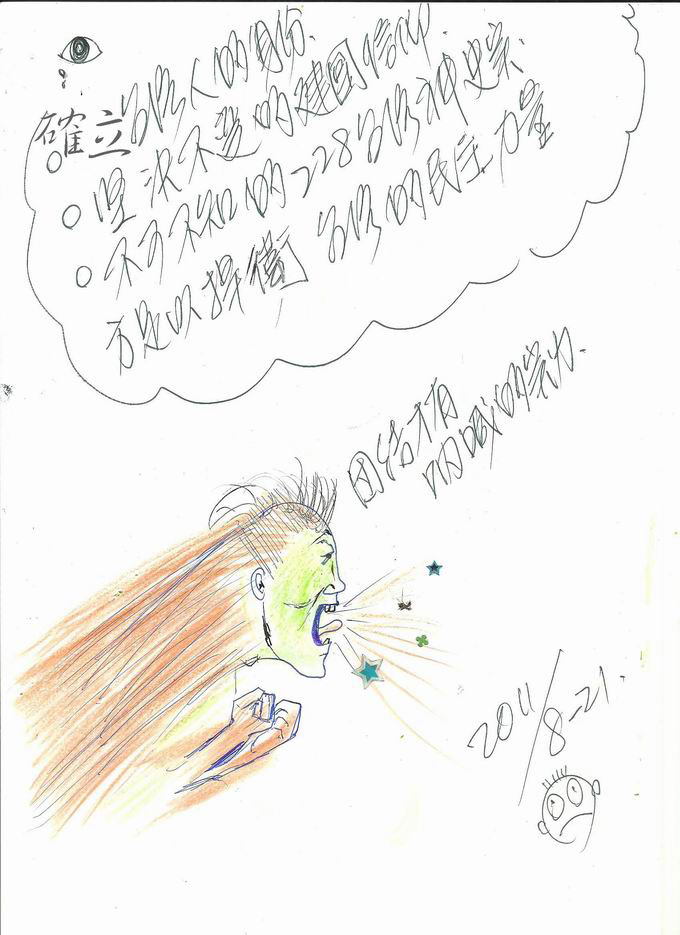 確立台灣人的身份.
坚決不變的建國信仰.
不可不知的228台灣
方足以捍衛 台灣的民主力量
团结才有
吶喊的
2011/8-21.